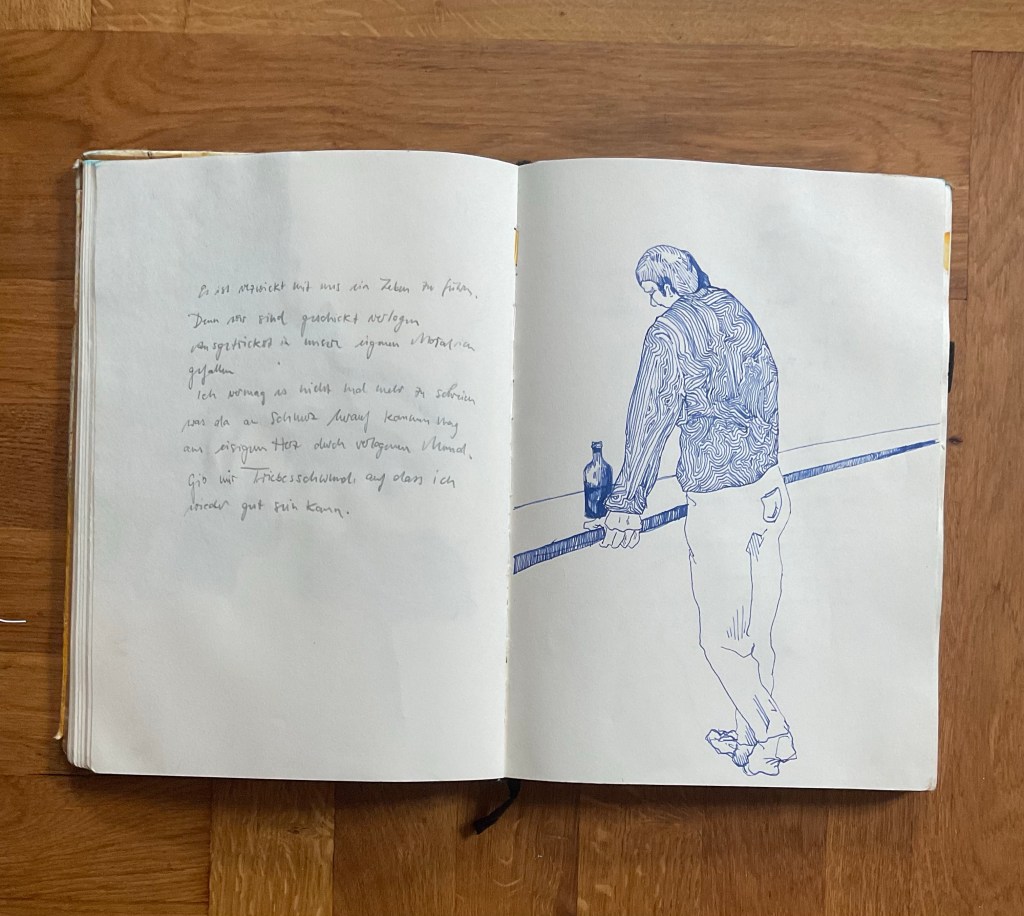 Es ist verzwickt mit uns ein Leben zu führen.
Denn wir sind geschickt verlogen
ausgetrickst in unsere eigenen
gefallen
Ich vermag es nicht mal mehr zu schreien
was da an Schmerz herauf kommen mag
am eisigen Herz durch verlogenen Mund.
Gib mir Triebesschwund, auf dass ich
wieder gut sein kann.